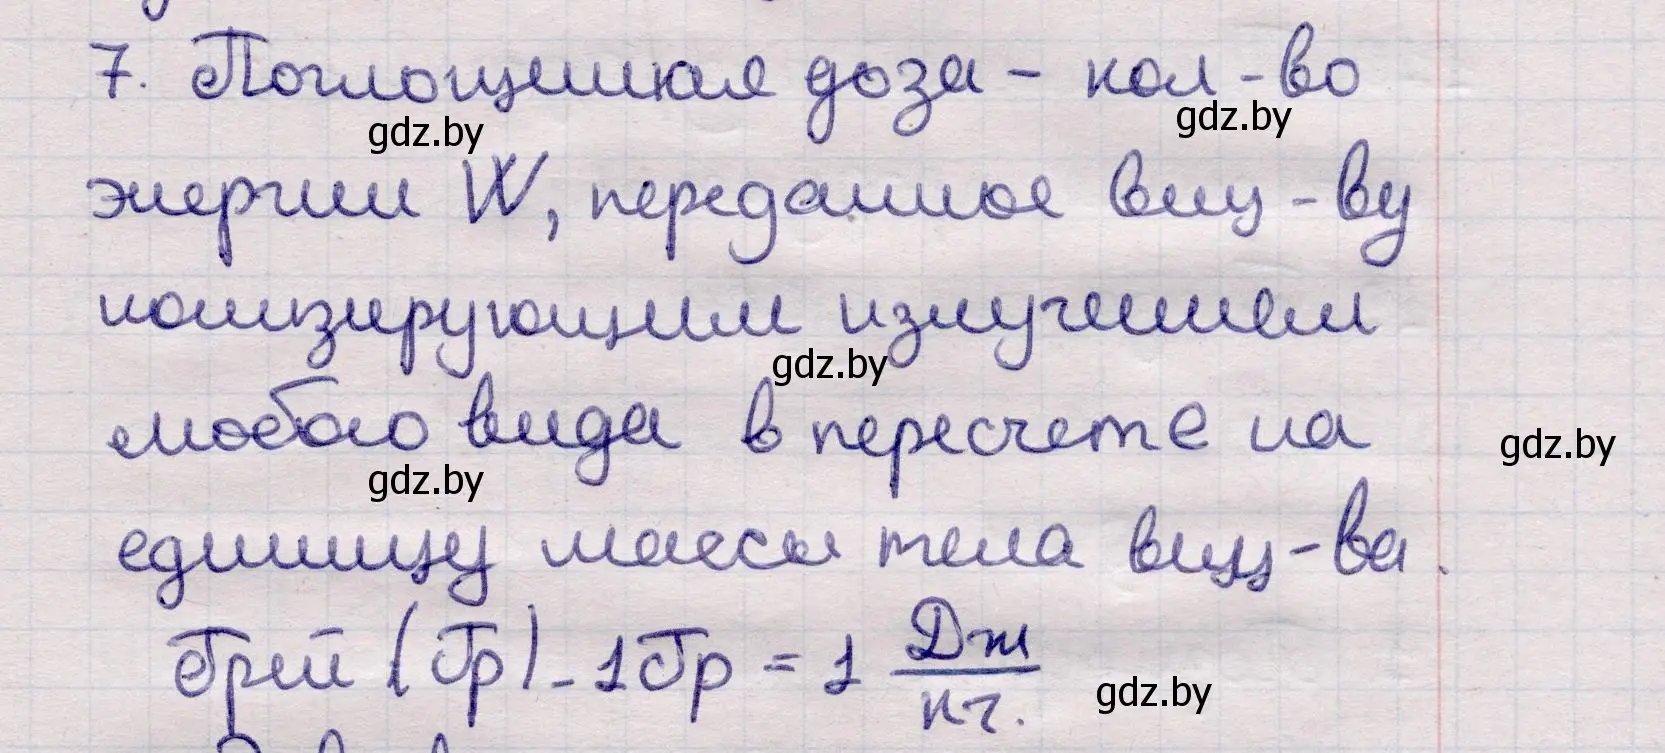 7. Поглощенная доза - кол-во
gdz.by
gdz.by
энергии W, переданное вещ-ву
ионизирующим излучением
gdz.by
любого вида в пересчете на
gdz.by
gdz.by
единицу массы тела вещ-ва.
Грей (Гр) - 1Гр = 1 Дж/кг.
gdz.by